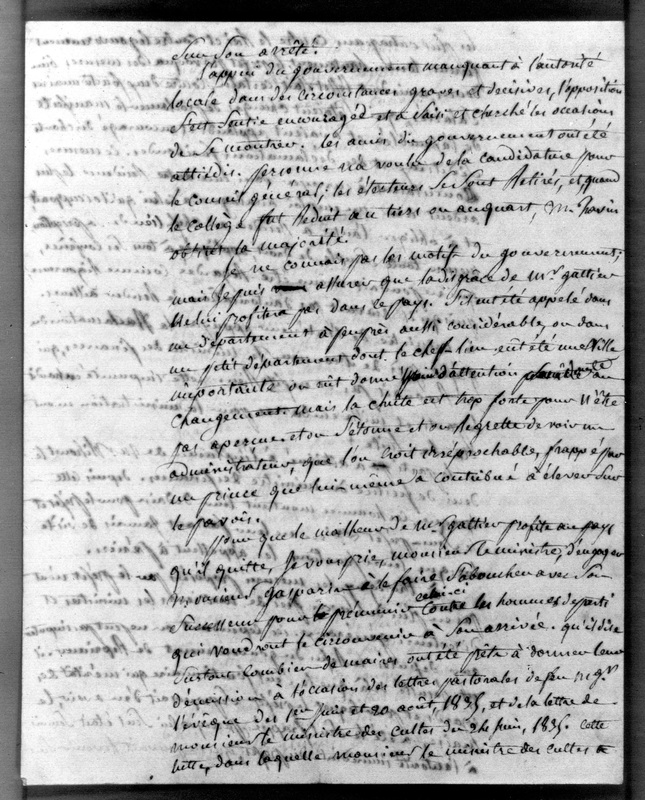 Sur Son arrêté.
L'appui du gouvernement manquant à l'autorité
locale dans des circonstances graves et décisives, l'opposition
s'est sentie encouragée et a saisi et cherché les occasions
de se montrer. les amis du gouvernement ont été
attiédis. personne n'a voulu de la candidature pour
le conseil général; les électeurs se sont retirés, et quand
le collège fut réduit au tiers ou au quart, M. havin
obtint la majorité.
Je ne connais pas les motifs du gouvernement;
mais je puis assurer que la disgrâce de Mr gattier
ne lui profitera pas dans le pays. S'il eut été appelé dans
un département à peu près aussi considérable, ou dans
un petit département dont le chef lieu eût été une ville
importante on eût donné d'attention au
changement. mais la chûte est trop forte pour n'être
pas aperçue et on s'étonne et on regrette de voir un
administrateur, que l'on croit irréprochable, frappé par
un prince que lui même a contribué à élever sur
le pavois.
pour que le malheur de Mr gattier profite au pays
qu'il quitte, je vous prie, monsieur le ministre, d'engager
monsieur gasparin à le faire s'aboucher avec son
successeur pour prémunir celui-ci contre les hommes de parti
qui vont le circonvenir à son arrivée. qu'il dise
surtout combien de maires ont été prêts à donner leur
démission à l'occasion des lettres pastorales de feu Mgr
l'évêque des 1er juin et 20 août, 1835, et de la lettre de
monsieur le ministre des cultes du 24 juin, 1835. cette
lettre, dans laquelle monsieur le ministre des cultes